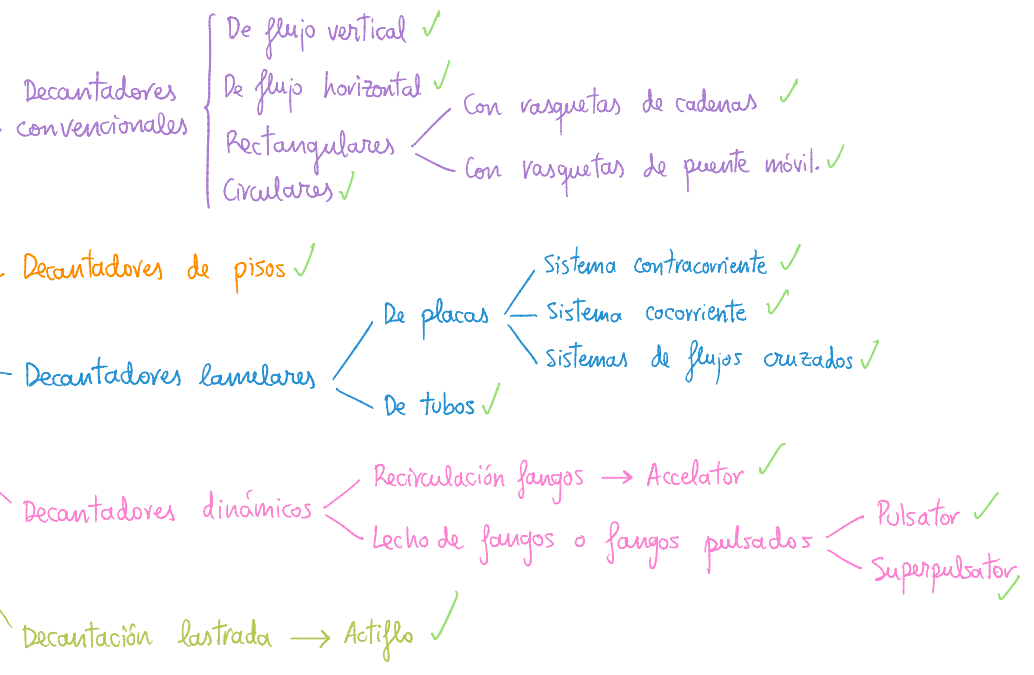 Decantadores
convencionales
De flujo vertical ✓
De flujo horizontal ✓
Rectangulares
Con rasquetas de cadenas ✓
Con rasquetas de puente móvil. ✓
Circulares ✓
Decantadores de pisos ✓
Decantadores lamelares
De placas
Sistema contracorriente ✓
Sistema cocorriente ✓
Sistemas de flujos cruzados ✓
De tubos ✓
Decantadores dinámicos
Recirculación fangos → Accelator ✓
Lecho de fangos o fangos pulsados
Pulsator ✓
Superpulsator ✓
Decantación lastrada → Actiflo ✓